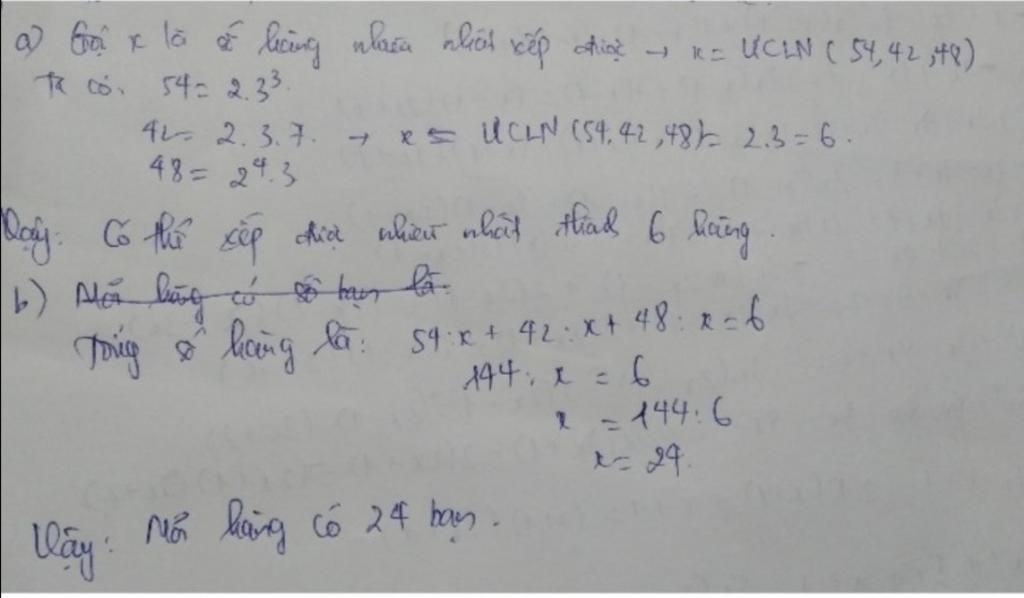 a) Gọi x là số hàng nhiều nhất xếp được → x = ƯCLN (54,42,48)
Ta có. 54 = 2.3³.
42 = 2.3.7. → x = ƯCLN(54,42,48) = 2.3 = 6.
48 = 2⁴.3
Vậy: Có thể xếp được nhiều nhất thành 6 hàng.
b) Mỗi hàng có số bạn là:
Tổng số hàng là: 54:x + 42:x + 48:x = 6
144: x = 6
x = 144:6
x = 24.
Vậy: Mỗi hàng có 24 bạn.